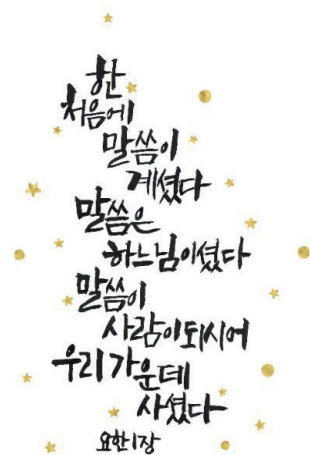 한
처음에
말씀이
계셨다
말씀은
하느님이셨다
말씀이
사람이되시어
우리가운데
사셨다
요한1장